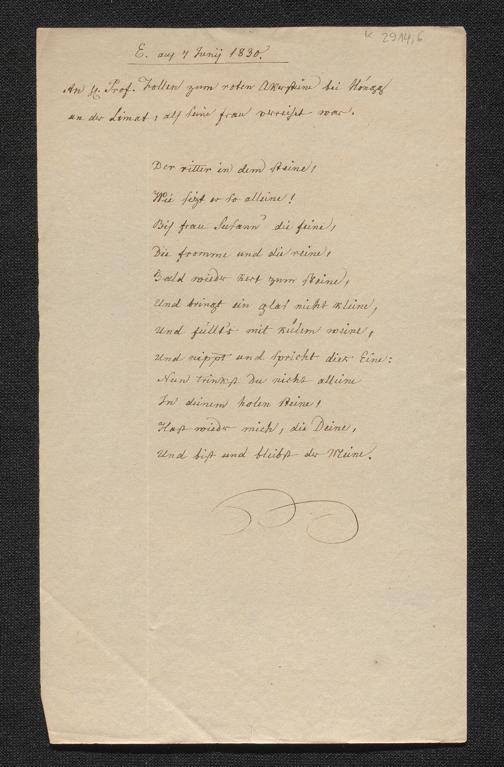 K 2914,6
E. auf 7 Junij 1830.
An H. Prof. Follen zum roten Akerstein bei Höngg
an der Limat, als seine frau verreiset war.
Der ritter in dem steine,
Wie sizt er so alleine!
Bis frau Susann' die feine,
Die fromme und die reine,
Bald wieder kert zum steine,
Und bringt ein glas nicht kleine,
Und füllt's mit külem weine,
Und nippt und spricht die Eine:
Nun trinkst Du nicht alleine
In deinem holen steine,
Hast wieder mich, die Deine,
Und bist und bleibst der Meine.